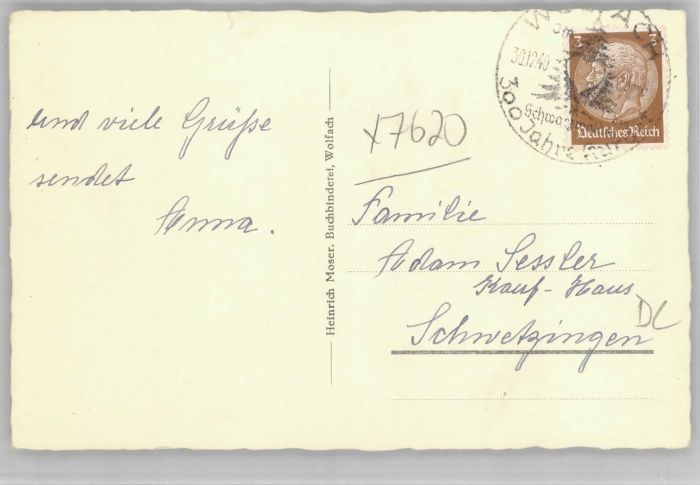 und viele Grüße
sendet
Anna.
Heinrich Moser, Buchbinderei, Wolfach
x7620
Familie
Adam Sessler
Kauf-Haus
Schwetzingen
DL
WOLFACH
im
30.12.40
300 Jahre
3 3
Deutsches Reich